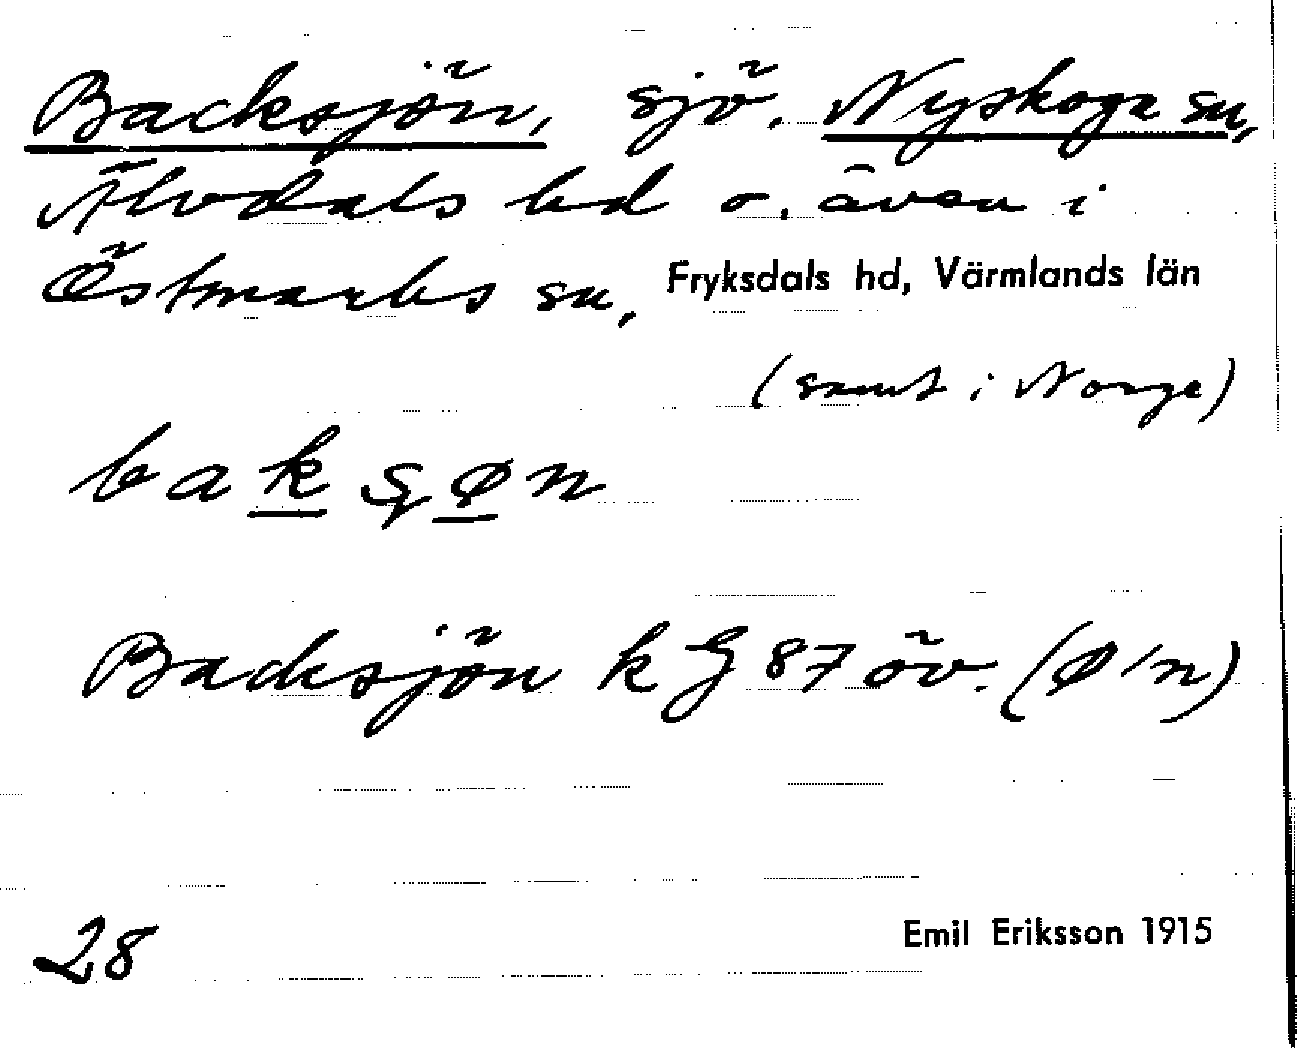 Backsjön, sjö. Nyskoga sn,
Älvdals hd o. även i
Östmarks sn, Fryksdals hd, Värmlands län
(samt i Norge)
bakşøn
Backsjön k G 87 öv. (ø/n)
28 Emil Eriksson 1915